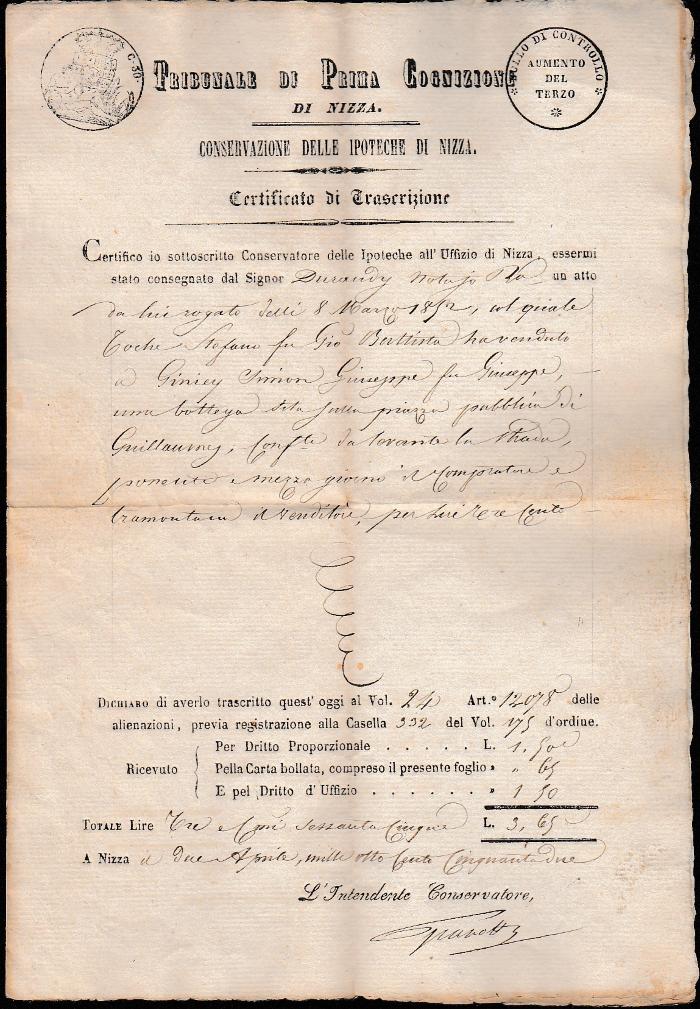 C. 30.
TRIBUNALE DI PRIMA COGNIZIONE
DI NIZZA.
BOLLO DI CONTROLLO
AUMENTO
DEL
TERZO
CONSERVAZIONE DELLE IPOTECHE DI NIZZA.
Certificato di Trascrizione
Certifico io sottoscritto Conservatore delle Ipoteche all' Uffizio di Nizza, essermi
stato consegnato dal Signor Durandy Notajo un atto
da lui rogato delli 8 Marzo 1852, col quale
Toche Stefano fu Gio Battista ha venduto
a Giniey Simon Giuseppe fu Giuseppe,
una bottega sita sulla piazza pubblica di
Guillaumes, Conf.te da levante la strada,
ponente e mezzo giorno il Compratore e
tramontana il venditore, per Lire Tre Cento
DICHIARO di averlo trascritto quest' oggi al Vol. 24 Art.º 12078 delle
alienazioni, previa registrazione alla Casella 332 del Vol. 175 d'ordine.
Per Dritto Proporzionale . . . . . L. 1. 50
Ricevuto Pella Carta bollata, compreso il presente foglio » » 65
E pel Dritto d' Uffizio . . . . . . . » 1 50
TOTALE Lire Tre e Cmi Sessanta Cinque L. 3. 65
A Nizza il due Aprile, mille otto Cento Cinquantadue
L'Intendente Conservatore,